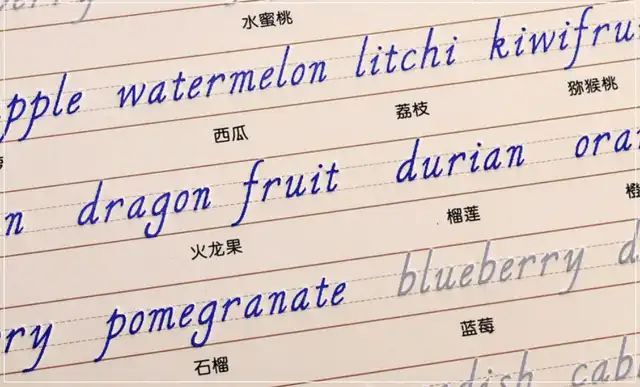 erry
水蜜桃
pple watermelon litchi kiwifru
西瓜 荔枝 猕猴桃
n dragon fruit durian oran
火龙果 榴莲 橙
ry pomegranate blueberry d
石榴 蓝莓
dish cab